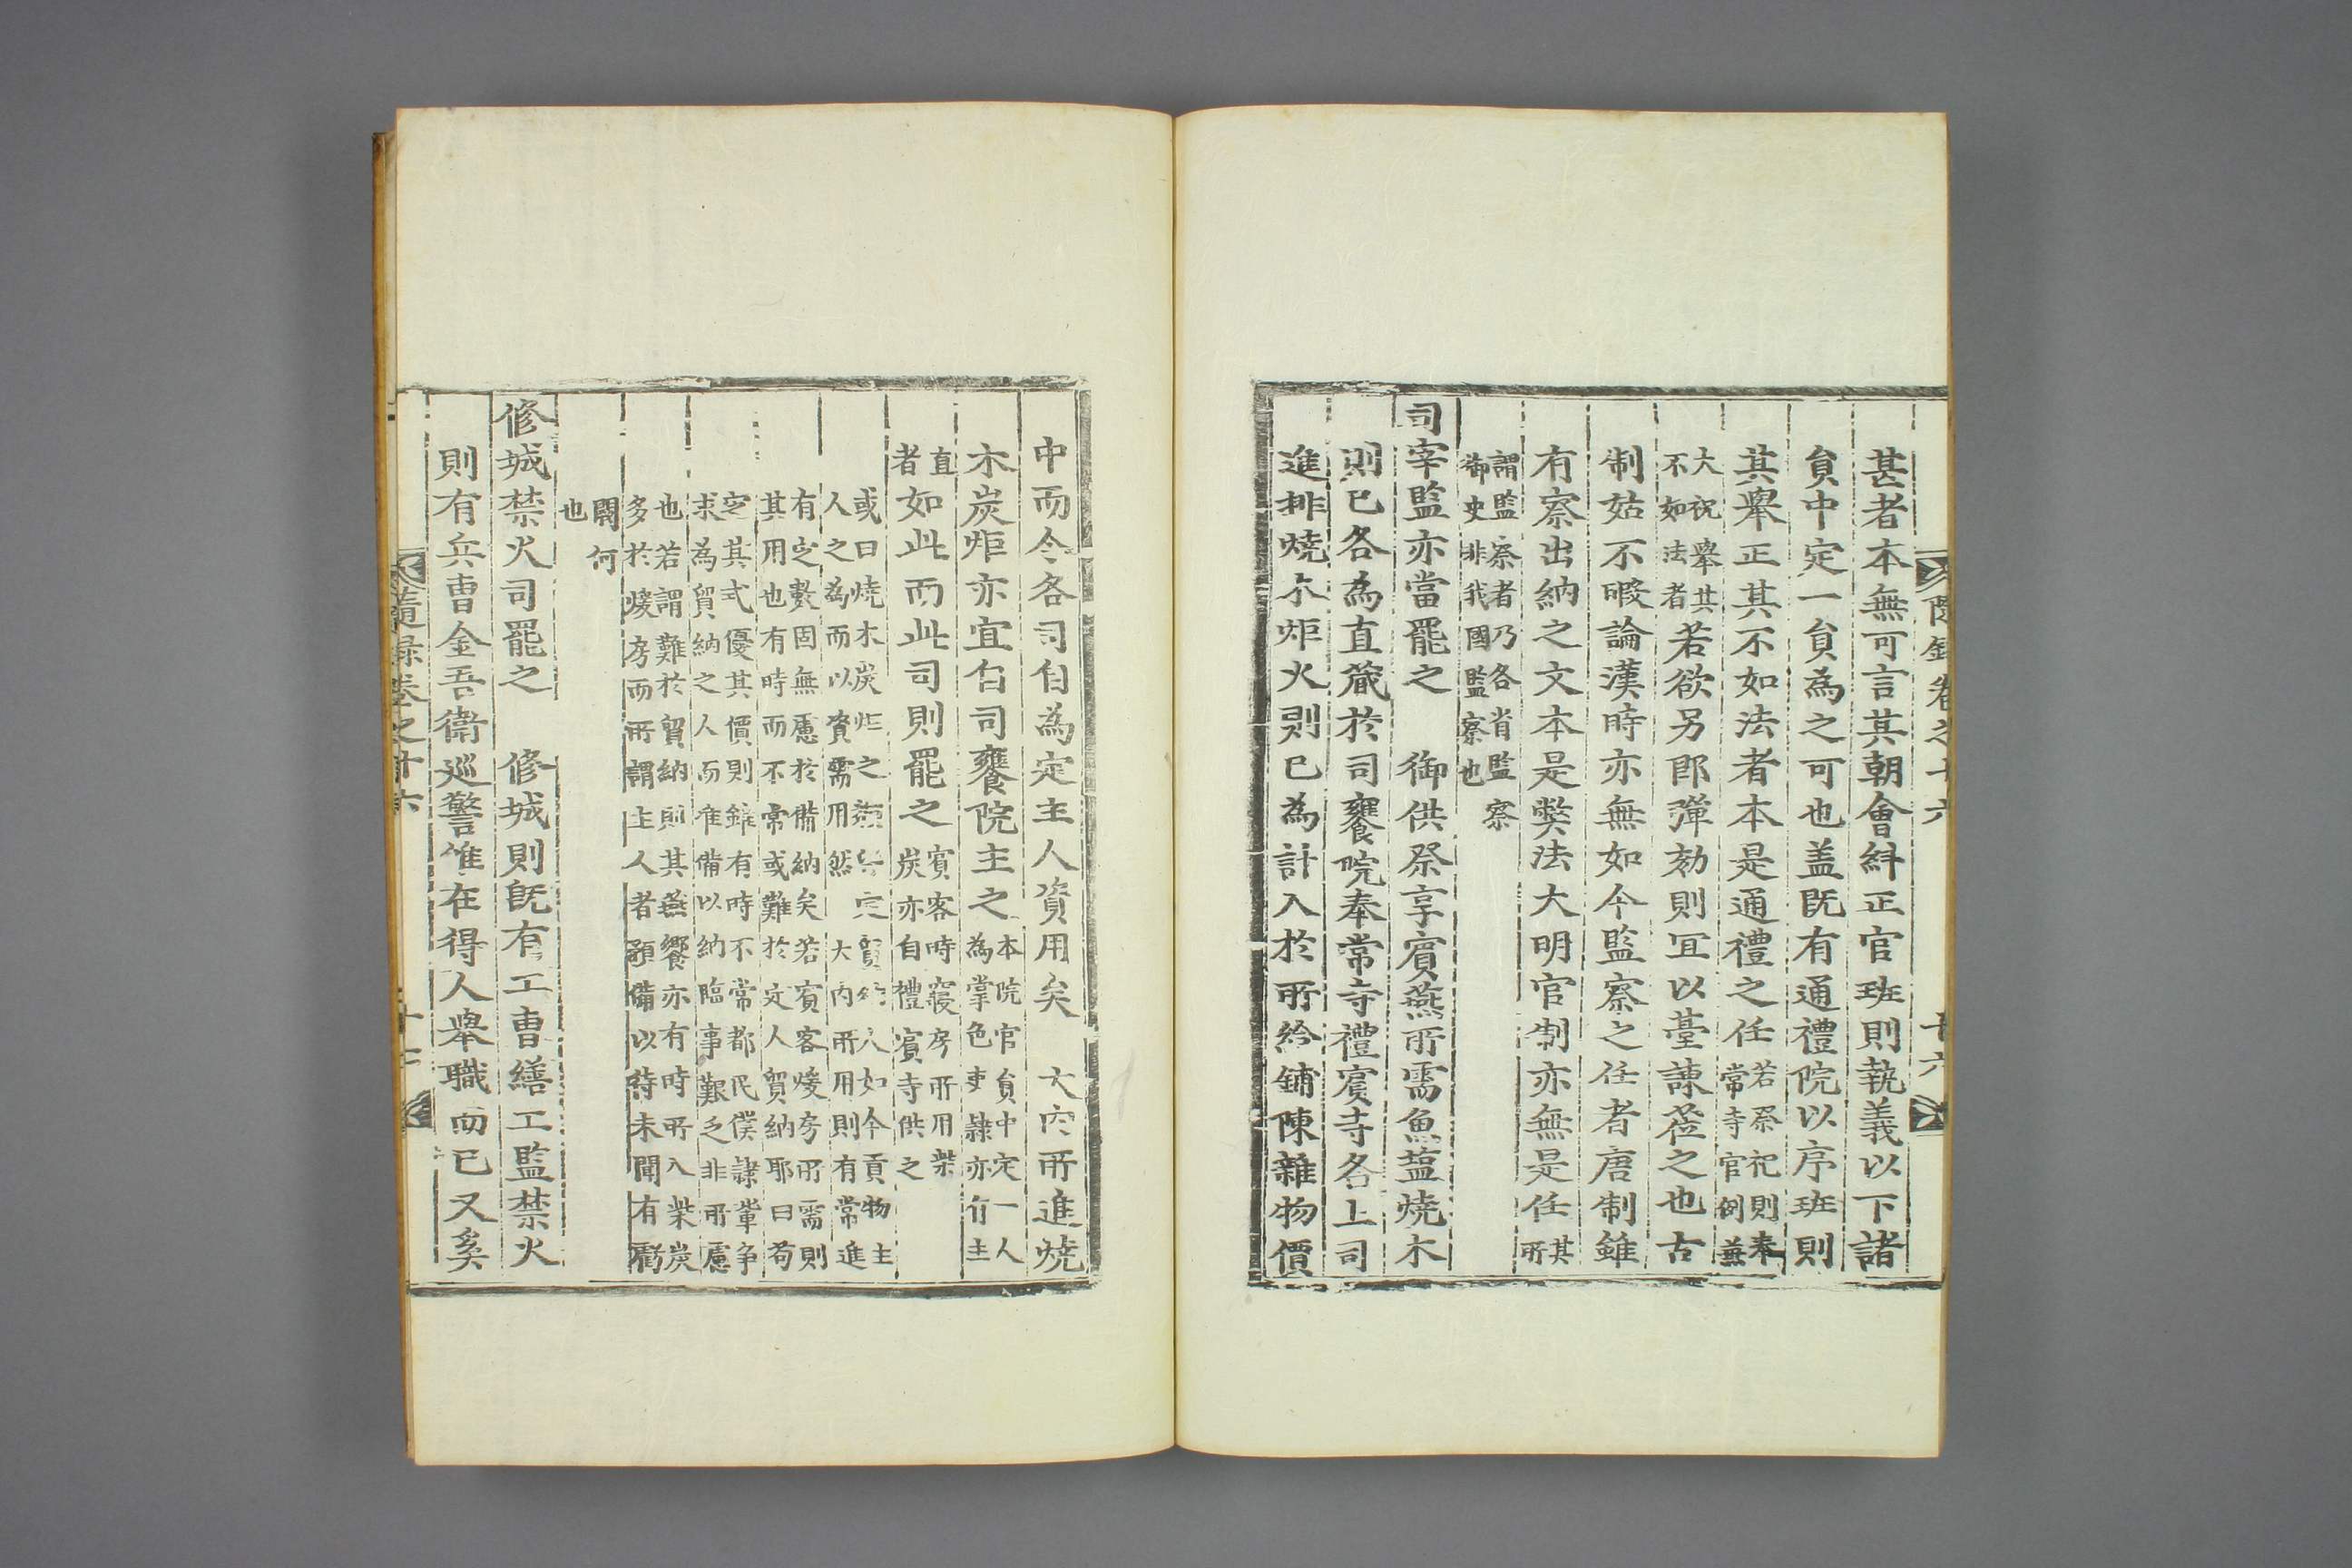 隨錄卷之十六 十六
甚者本無可言其朝會糾正官班則執義以下諸
員中定一員為之可也盖既有通禮院以序班則
其擧正其不如法者本是通禮之任若祭祀則奉常寺官例兼
大祝擧其不如法者若欲另卽彈劾則冝以䑓諫莅之也古
制姑不暇論漢時亦無如今監察之任者唐制雖
有察出納之文本是弊法大明官制亦無是任其所
謂監察者乃各省監察御史非我國監察也
司宰監亦當罷之 御供祭享賓燕所需魚塩燒木
則已各為直蔵於司饔院奉常寺禮賓寺各上司
進排燒木炬火則已為計入於所給鋪陳雜物價
中而令各司自為定主人資用矣 大內所進燒
木炭炬亦宜自司饔院主之本院官員中定一人為掌色吏隷亦有主
直者如此而此司則罷之賓客時寢房所用柴炭亦自禮賓寺供之
或曰燒木炭炬之類 定 人如今貢物主
人之為而以資需用然 大內所用則有常進
有定數固無慮於備納矣若賓客煖房所需則
其用也有時而不常或難於定人貿納耶曰苟
定其式優其價則雖有時不常都民僕隷輩爭
求為貿納之人而准備以納臨事艱乏非所慮
也若謂難於貿納則其燕饗亦有時所入柴炭
多於煖房而所謂主人者預備以待未聞有虧
闕何
也
修城禁火司罷之 修城則旣有工曹繕工監禁火
則有兵曹金吾衛巡警惟在得人擧職而已又奚
隨錄卷之十六 十七